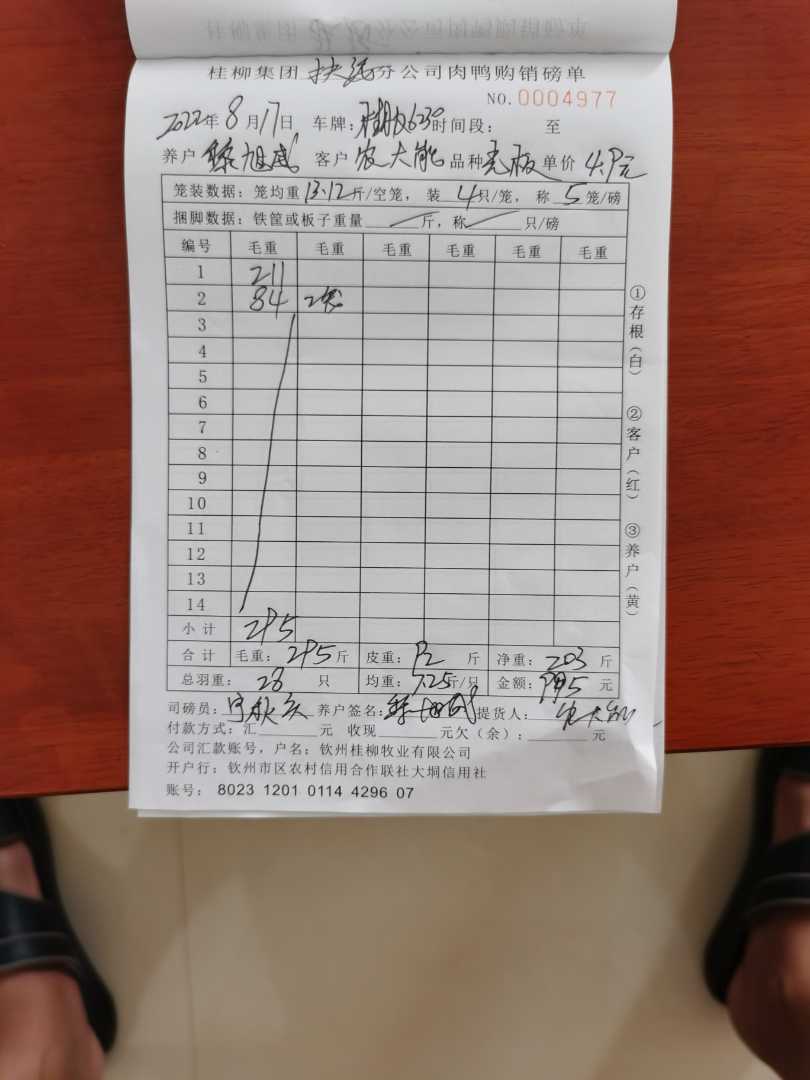 桂柳集团 分公司肉鸭购销磅单
NO. 0004977
2022年 8月17日 车牌: 时间段: 至
养户 旭威 客户 农大能 品种 壳板 单价 4.9元
笼装数据: 笼均重13.12斤/空笼, 装 4只/笼, 称 5笼/磅
捆脚数据: 铁筐或板子重量 斤, 称 只/磅
编号 毛重 毛重 毛重 毛重 毛重 毛重
1 211
2 84 2笼
3
4
5
6
7
8
9
10
11
12
13
14
小计 295
合计 毛重: 295斤 皮重: 92 斤 净重: 203 斤
总羽重: 28 只 均重: 7.25斤/只 金额: 995 元
司磅员: 养户签名: 提货人: 农大能
付款方式: 汇 元 收现 元欠(余): 元
公司汇款账号, 户名: 钦州桂柳牧业有限公司
开户行: 钦州市区农村信用合作联社大垌信用社
账号: 8023 1201 0114 4296 07
①存根(白) ②客户(红) ③养户(黄)